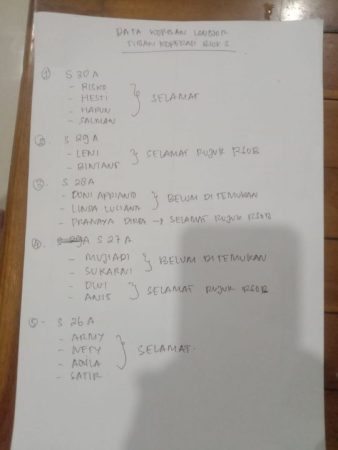 DATA KORBAN LONGSOR
TUBAN KOPERASI BLOK S
① S 30 A
- RISKO
- HESTI
- HARUN
- SALMAN
SELAMAT
②. S 29 A
- LENI
- BINTANG
SELAMAT RUJUK RSOB
③. S 28 A
- DONI APRIANTO
- LINDA LUCIANA
BELUM DI TEMUKAN
- PRANAYA DIRGA → SELAMAT RUJUK RSOB
④. S 27 A
- MUJIADI
- SUKARNI
BELUM DI TEMUKAN
- DWI
- ANIS
SELAMAT RUJUK RSOB
⑤. S 26 A
- ARMY
- NETY
- ADILA
- SATIR
SELAMAT.